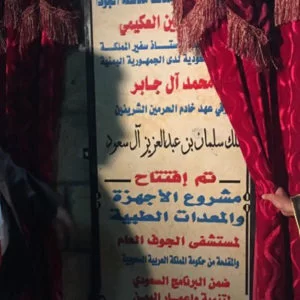 محافظة الجوف
ين العكيمي
ستاذ سفير المملكة
عودية لدى الجمهورية اليمنية
محمد آل جابر
في عهد خادم الحرمين الشريفين
ملك سلمان بن عبدالعزيز آل سعود
تم إفتتاح
مشروع الأجهزة
والمعدات الطبية
لمستشفى الجوف العام
والمقدمة من حكومة المملكة العربية السعودية
ضمن البرنامج السعودي
لتنمية وإعمار اليمن